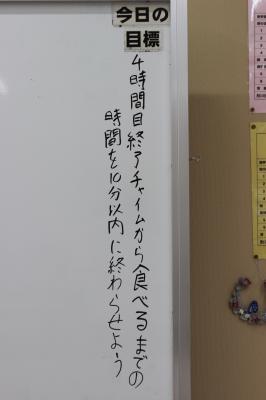 今日の
目標
4時間目終了チャイムから食べるまでの
時間を10分以内に終わらせよう